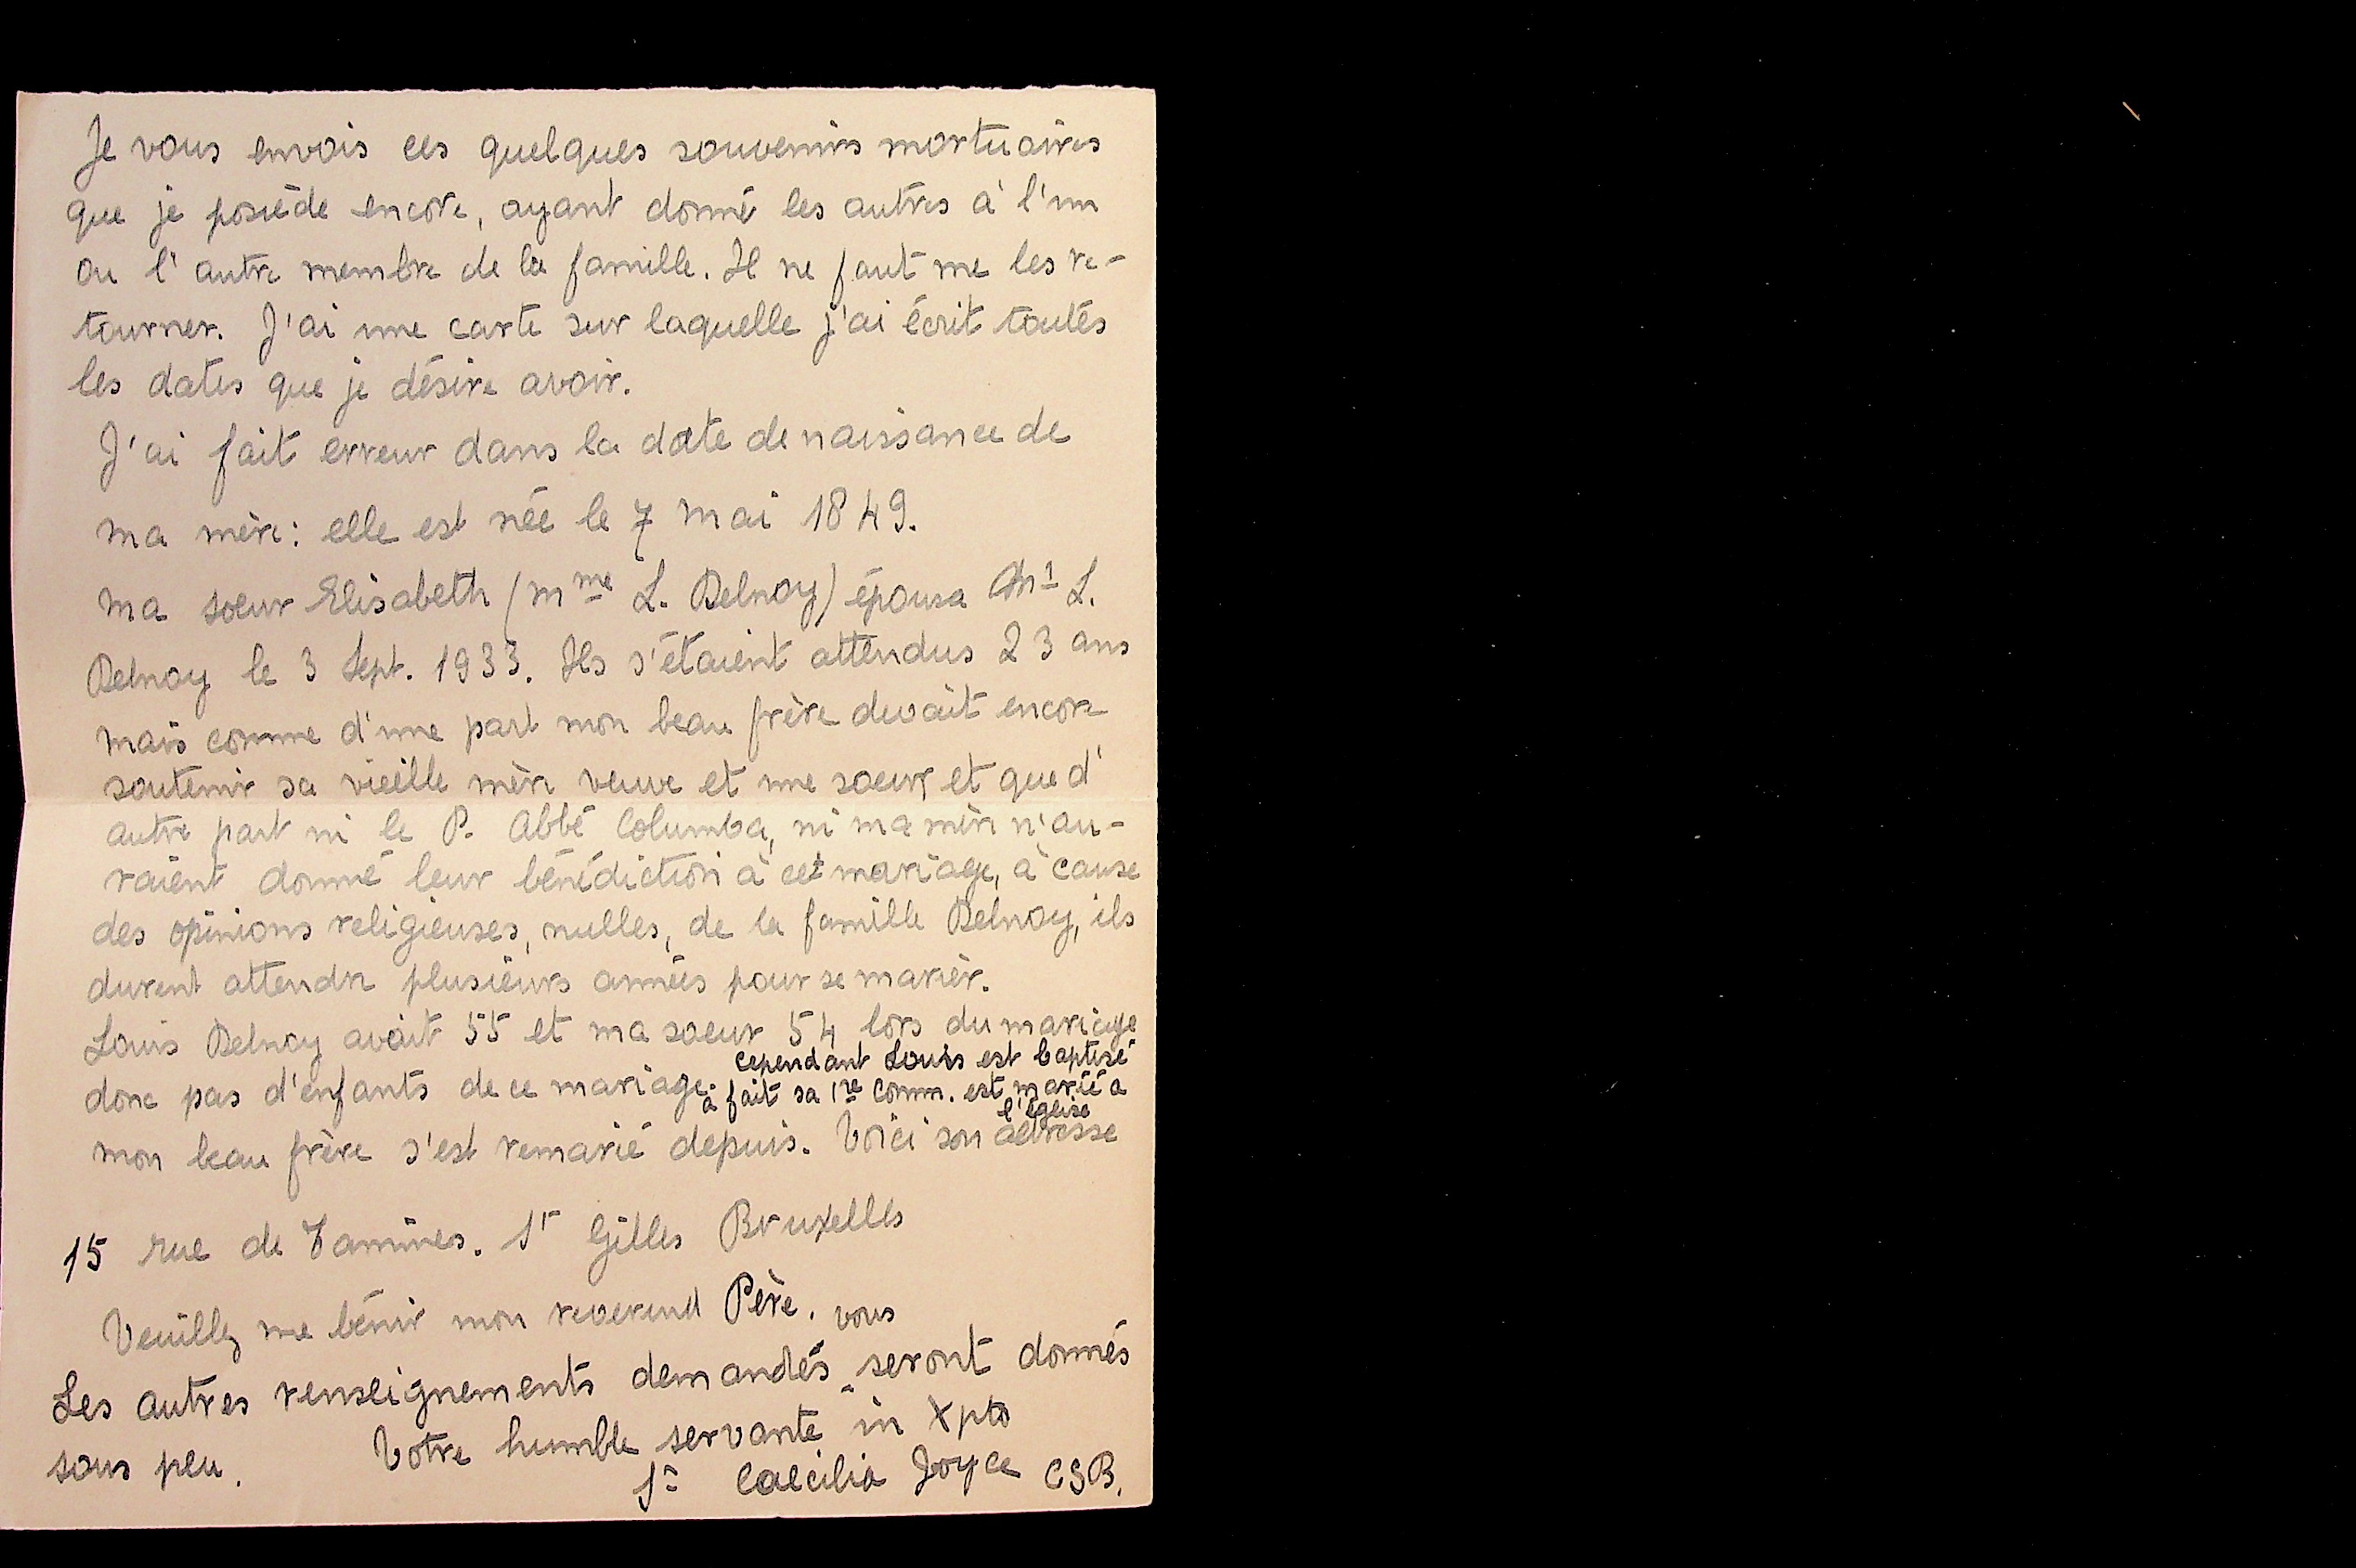 Je vous envois ces quelques souvenirs mortuaires
que je posiède encore, ayant donné les autres à l'un
ou l'autre membre de la famille. Il ne faut me les re-
tourner. J'ai une carte sur laquelle j'ai écrit toutes
les dates que je désire avoir.
J'ai fait erreur dans la date de naissance de
ma mère: elle est née le 7 mai 1849.
Ma soeur Elisabeth (Mme L. Delnoy) épousa Mr L.
Delnoy le 3 Sept. 1933. Ils s'étaient attendus 23 ans
mais comme d'une part mon beau frère devait encore
soutenir sa vieille mère veuve et une soeur, et que d'
autre part ni le P. Abbé Columba, ni ma mère n'au-
raient donné leur bénédiction à cet mariage, à cause
des opinions religieuses, nulles, de la famille Delnoy, ils
durent attendre plusieurs années pour se marier.
Louis Delnoy avait 55 et ma soeur 54 lors du mariage
donc pas d'enfants de ce mariage. cependant Louis est baptisé
a fait sa 1re Comm. est marié a
l'église
mon beau frère s'est remarié depuis. Voici son adresse
15 rue de Tamines. St Gilles Bruxelles
Veuillez me bénir mon reverend Père.
Les autres renseignements demandés vous seront donnés
sous peu. Votre humble servante in Xpto
Sr Caecilia Joyce CSB.